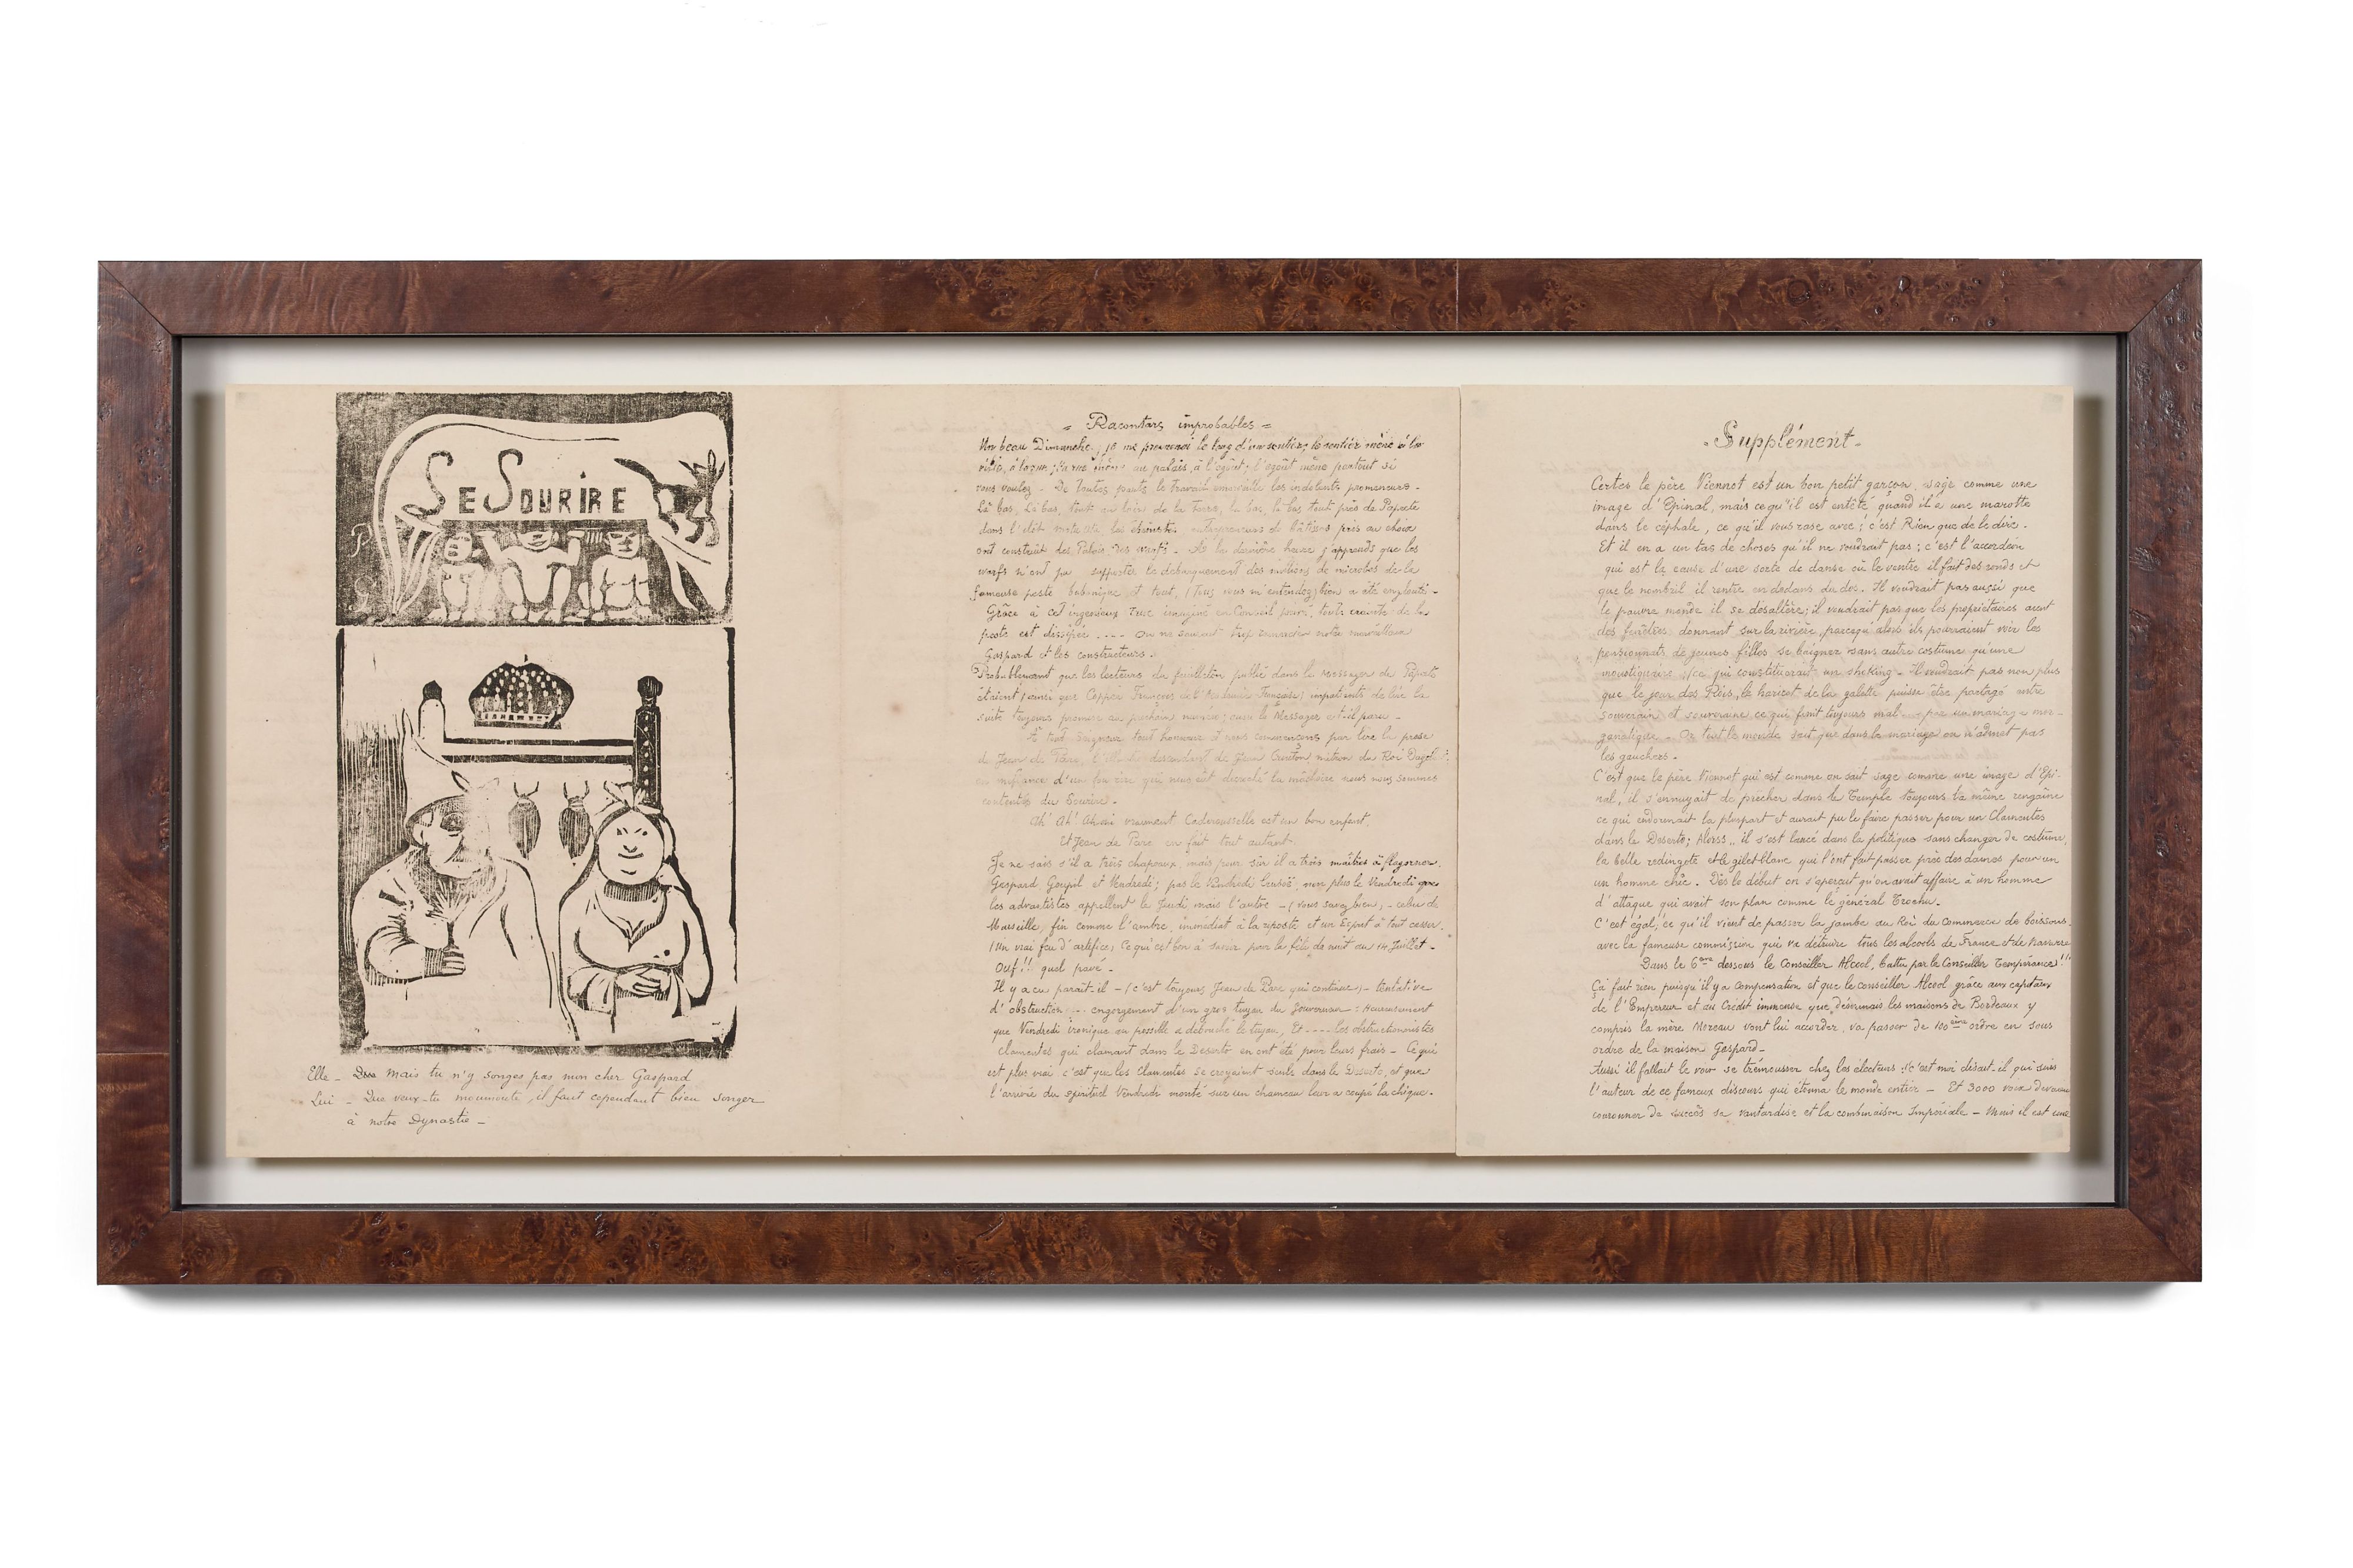 Le Sourire
Elle - Mais tu n'y songes pas mon cher Gaspard
Lui - Que veux-tu moumoute, il faut cependant bien songer
à notre Dynastie -
= Racontars improbables =
Un beau Dimanche, je me promenai le long d'un sentier, le sentier mène à la
au palais, à l'égout; l'égout mène partout si
vous voulez - De toutes parts le travail émerveille les indolents promeneurs -
Là bas, Là bas, tout au loin de la terre, là bas, là bas tout près de Papeete
dans l'ilôt entrepreneurs de bâtiments pris au choix
ont construit des Palais, des warfs - A la dernière heure j'apprends que les
warfs n'ont pu supporter le débarquement des millions de microbes de la
fameuse peste et tout, (Tous vous m'entendez bien) a été englouti -
Grâce à cet ingénieux truc imaginé en Conseil privé, toute crainte de la
peste est dissipée .... On ne saurait trop remercier notre merveilleux
Gaspard et les constructeurs.
Probablement que les lecteurs du feuilleton publié dans le Messager de Papeete
étaient que Coppée François de l'Académie Française) impatients de lire la
suite toujours promise au prochain numéro; aussi le Messager est-il paru -
A tout seigneur tout honneur et nous commençons par lire la prose
de Jean de Paré, descendant de Jean Crouton mitron du Roi Dagobert;
en méfiance d'un fou rire qui nous eût décroché la mâchoire nous nous sommes
contentés du Sourire.
Ah! Ah! Ah oui vraiment Caderousselle est un bon enfant,
Et Jean de Paré en fait tout autant.
Je ne sais s'il a trois chapeaux, mais pour sûr il a trois maîtres à flagorner.
Gaspard Goupil et Vendredi; pas le Vendredi Crusoë, non plus le Vendredi que
les adventistes appellent le Jeudi mais l'autre - (vous savez bien) - celui de
Marseille, fin comme l'ambre, immédiat à la riposte et un Esprit à tout casser.
(Un vrai feu d'artifice, Ce qui est bon à savoir pour la fête de nuit au 14 Juillet -
Ouf!! quel pavé -
Il y a eu paraît-il - (c'est toujours Jean de Paré qui continue) - tentative
d'obstruction .... engorgement d'un gros tuyau du Gouverneur: Heureusement
que Vendredi ironique au possible a débouché le tuyau, Et .... les obstructionnistes
clamentes qui clamant dans le Deserto en ont été pour leurs frais - Ce qui
est plus vrai c'est que les clamentes se croyaient seuls dans le Deserto, et que
l'arrivée du spirituel Vendredi monté sur un chameau leur a coupé la chique.
- Supplément -
Certes le père Viennot est un bon petit garçon, sage comme une
image d'Epinal, mais ce qu'il est entêté, quand il a une marotte
dans le céphale, ce qu'il vous rase avec; c'est Rien que de le dire.
Et il en a un tas de choses qu'il ne voudrait pas; c'est l'accordéon
qui est la cause d'une sorte de danse où le ventre il fait des ronds et
que le nombril il rentre en dedans du dos. Il voudrait pas aussi que
le pauvre monde il se désaltère; il voudrait pas que les propriétaires aient
des fenêtres donnant sur la rivière, parcequ'alors ils pourraient voir les
pensionnats de jeunes filles se baigner sans autre costume qu'une
moustiquaire (ce qui constituerait un shoking - Il voudrait pas non plus
que le jour des Rois, le haricot de la galette puisse être partagé entre
souverain et souveraine ce qui finit toujours mal par un mariage mor-
ganatique - Or tout le monde sait que dans le mariage on n'admet pas
les gauchers.
C'est que le père Viennot qui est comme on sait sage comme une image d'Epi-
nal, il s'ennuyait de prêcher dans le Temple toujours la même rengaine
ce qui endormait la plupart et aurait pu le faire passer pour un Clamentes
dans le Deserto; Alorss.. il s'est lancé dans la politique sans changer de costume,
la belle redingote et le gilet blanc qui l'ont fait passer près des dames pour un
un homme chic. Dès le début on s'aperçut qu'on avait affaire à un homme
d'attaque qui avait son plan comme le général Trochu.
C'est égal, ce qu'il vient de passer la jambe au Roi du Commerce de boissons,
avec la fameuse commission qui va détruire tous les alcools de France et de Navarre
Dans le 6ème dessous le Conseiller Alcool, battu par le Conseiller Tempérance!!!
Ça fait rien puisqu'il y a compensation et que le conseiller Alcool grâce aux capitaux
de l'Empereur et au Crédit immense que désormais les maisons de Bordeaux y
compris la mère Moreau vont lui accorder, va passer de 100ème ordre en sous
ordre de la maison Gaspard -
Aussi il fallait le voir se trémousser chez les électeurs: "c'est moi disait-il qui suis
l'auteur de ce fameux discours qui étonna le monde entier - Et 3000 voix
couronner de succès sa vantardise et la combinaison Impériale - Mais il est une